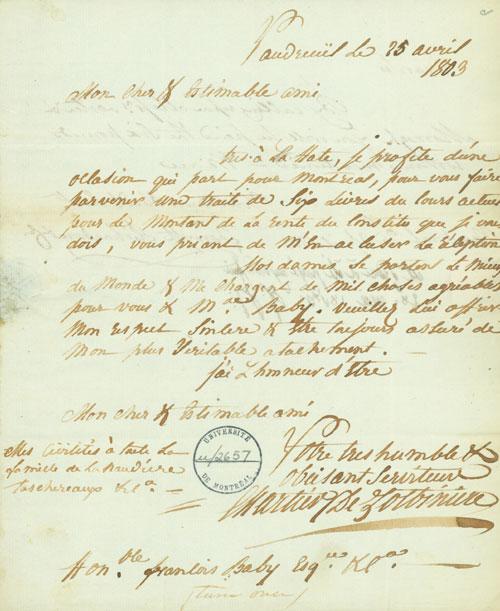 Vaudreüil Le 25 avril
1803
Mon cher & Estimable ami
tres à La Hate, Je profite d'une
occasion qui part pour Montreal, pour vous faire
parvenir une traite de Six Livres du Cours actuel
pour Le Montant de La rente du Constitu que je vous
dois, vous priant de M'En accuser La Réception
Nos dames se portent Le Mieux
du Monde & Me Chargent de Mil choses agréables
pour vous & M.de Baby. veuillez Lui offrir
Mon Respect Sincere & Etre toujours assuré de
Mon plus Veritable atachement.
J'ai L'honneur d'Etre
Mon Cher & Estimable ami
Votre tres humble &
obeisant Serviteur
Chartier De Lotbiniere
Mes Civilités à toute La
famille de La Naudiere
taschereaux & Ca.
UNIVERSITÉ
u/2657
DE MONTRÉAL
Hon.ble francois Baby Esq.re &Ca.
(turn over)